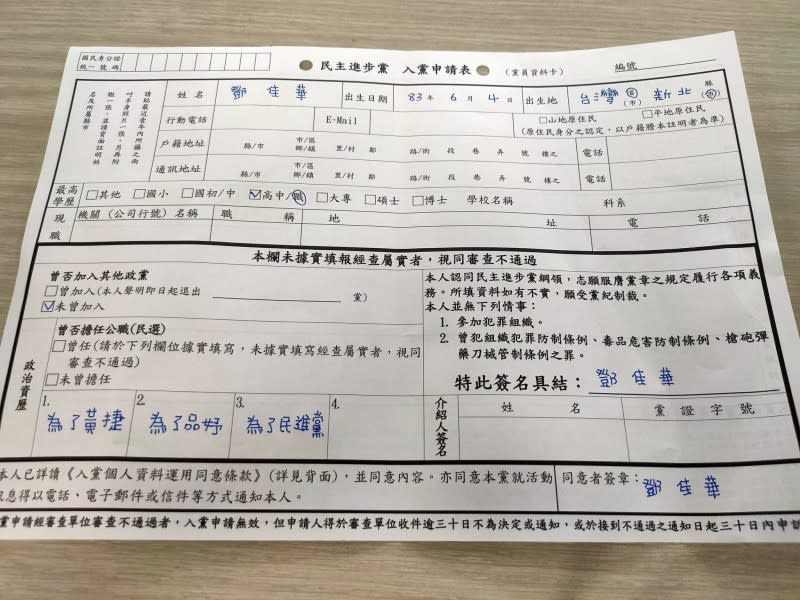 國民身分證
統一號碼
民主進步黨 入黨申請表
(黨員資料卡)
編號
請貼最近壹年內所攝之兩
吋半身照片一張,另再附
繳一張,並請背面註明姓
名及所屬縣市
姓名 鄧佳華 出生日期 83年 6月 4日 出生地 台灣 省(市) 新北 縣(市)
行動電話 E-Mail □山地原住民 □平地原住民
(原住民身分之認定,以戶籍謄本註明者為準)
戶籍地址 縣/市 市/區 鄉/鎮 里/村 鄰 路/街 段 巷 弄 號 樓之 電話
通訊地址 縣/市 市/區 鄉/鎮 里/村 鄰 路/街 段 巷 弄 號 樓之 電話
最高學歷 □其他 □國小 □國初/中 ☑高中/職 □大專 □碩士 □博士 學校名稱 科系
現職 機關(公司行號)名稱 職稱 地址 電話
本欄未據實填報經查屬實者,視同審查不通過
政治資歷
曾否加入其他政黨
□曾加入(本人聲明即日起退出 黨)
☑未曾加入
曾否擔任公職(民選)
□曾任(請於下列欄位據實填寫,未據實填寫經查屬實者,視同
審查不通過)
□未曾擔任
1. 為了黃捷
2. 為了品妤
3. 為了民進黨
4.
本人認同民主進步黨綱領,志願服膺黨章之規定履行各項義
務。所填資料如有不實,願受黨紀制裁。
本人並無下列情事:
1. 參加犯罪組織。
2. 曾犯組織犯罪防制條例、毒品危害防制條例、槍砲彈
藥刀械管制條例之罪。
特此簽名具結: 鄧佳華
介紹人簽名 姓名 黨證字號
本人已詳讀《入黨個人資料運用同意條款》(詳見背面),並同意內容。亦同意本黨就活動
訊息得以電話、電子郵件或信件等方式通知本人。
同意者簽章: 鄧佳華
黨申請經審查單位審查不通過者,入黨申請無效,但申請人得於審查單位收件逾三十日不為決定或通知,或於接到不通過之通知日起三十日內申訴